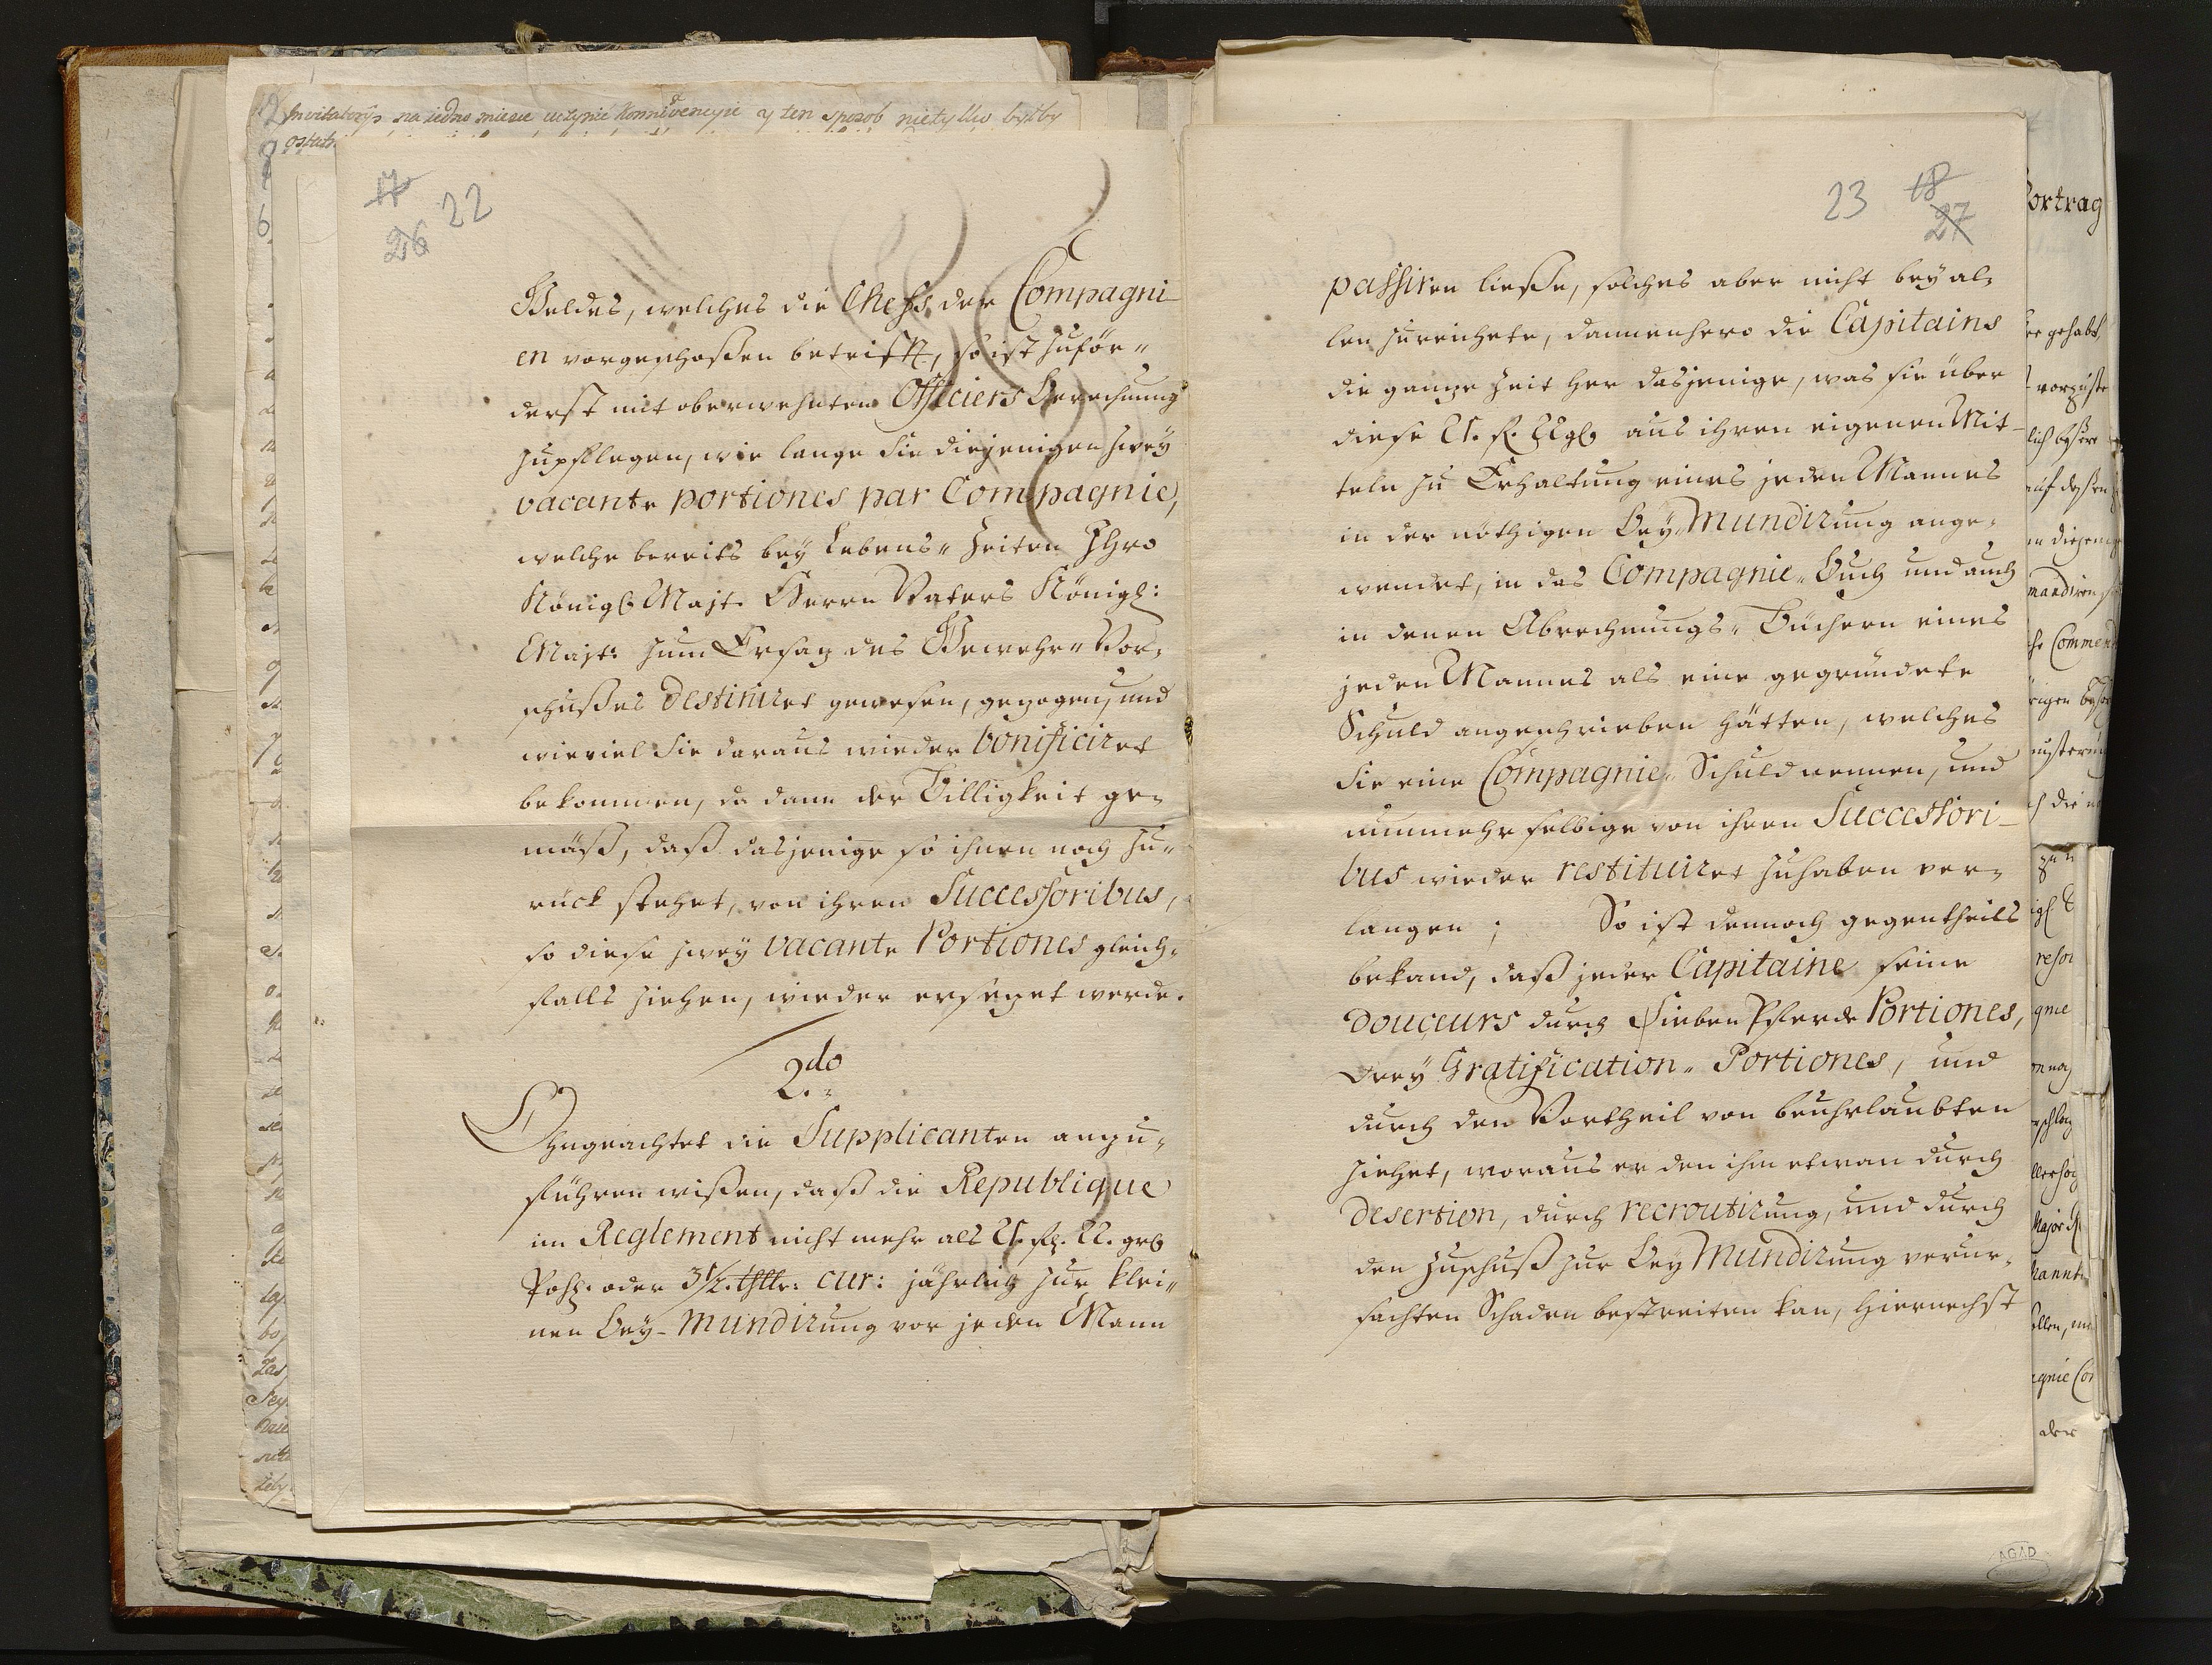 Invitatorys na iedno miesce uczynić konniwencyie y ten sposob nietylko byłby
17
26 22
Geldes, welches die Chefs der Compagni-
en vorgeschoßen betrifft, so ist zuför-
derst mit oberwehnten Officiers Berechnung
zupflegen, wie lange Sie diejenigen zwey
vacante portiones par Compagnie,
welche bereits bey Lebens-Zeiten Ihro
Königl. Majt. Herrn Vaters Königl:
Majt: zum Ersaz des Gewehr-Vor-
schußes destiniret gewesen, gezogen, und
wieviel Sie daraus wieder bonificiret
bekommen, da dann der Billigkeit ge-
mäß, daß dasjenige so ihnen noch zu-
rück stehet, von ihren Successoribus,
so diese zwey vacante Portiones gleich-
falls ziehen, wieder ersezet werde.
2.do
Ohngeachtet die Supplicanten anzu-
führen wißen, daß die Republique
im Reglement nicht mehr als 21. fl. 22. grl
Pohl. oder 3½. thlr: cur: jährlich zur klei-
nen Bey-Mundirung vor jeden Mann
23 18
27
passiren ließe, solches aber nicht bey al-
len zureichete, dannenhero die Capitains
die ganze Zeit her dasjenige, was sie über
diese 21. fl. 22gl aus ihren eigenen Mit-
teln zu Erhaltung eines jeden Mannes
in der nöthigen Bey-Mundirung ange-
wendet, in das Compagnie-Buch und auch
in denen Abrechnungs-Büchern eines
jeden Mannes als eine gegründete
Schuld angeschrieben hätten, welches
Sie eine Compagnie-Schuld nennen, und
nunmehr selbige von ihren Successori-
bus wieder restituiret zuhaben ver-
langen; So ist dennoch gegentheils
bekand, daß jeder Capitaine seine
Douçeurs durch Sieben Pferde Portiones,
drey Gratification-Portiones, und
durch den Vortheil von beuhrlaubten
ziehet, woraus er den ihm etwan durch
Desertion, durch recroutirung, und durch
den Zuschuß zur Bey Mundirung verur-
sachten Schaden bestreiten kan, hiernechst
AGAD